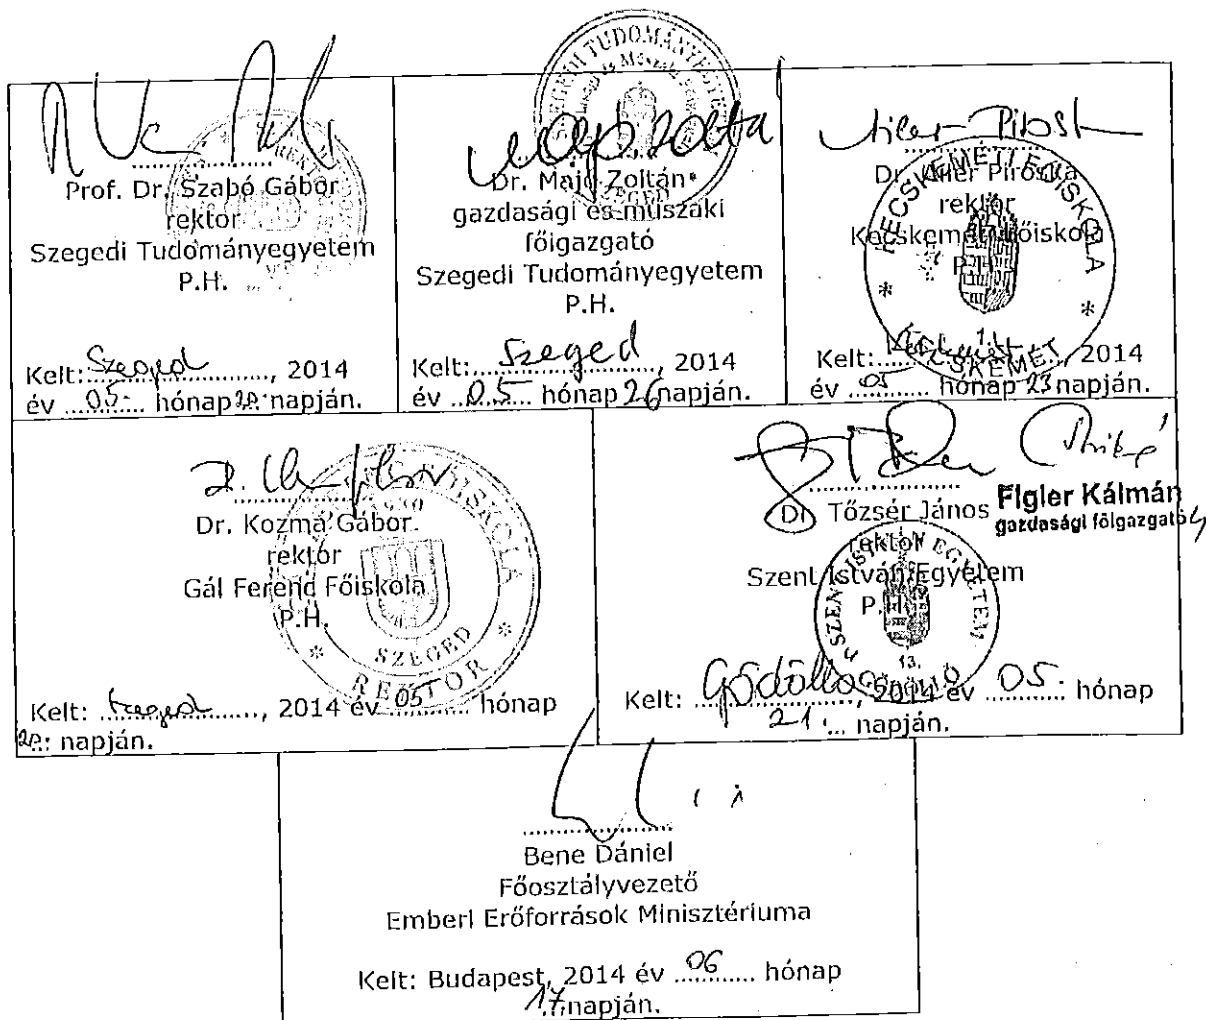 Prof. Dr. Szabó Gábor
rektor
Szegedi Tudományegyetem
P.H.
Kelt: Szeged, 2014
év 05. hónap 20. napján.
Dr. Majó Zoltán
gazdasági és műszaki
főigazgató
Szegedi Tudományegyetem
P.H.
Kelt: Szeged, 2014
év 05. hónap 26 napján.
Dr. Piroska
rektor
Kecskeméti Főiskola
P.H.
KECSKEMÉTI FŐISKOLA
* KECSKEMÉT *
1.
Kelt: , 2014
év 05 hónap 23 napján.
Dr. Kozma Gábor
rektor
Gál Ferenc Főiskola
P.H.
SZEGED
* REKTOR *
Kelt: Szeged, 2014 év 05 hónap
20. napján.
Dr. Tőzsér János
rektor
Szent István Egyetem
P.H.
Figler Kálmán
gazdasági főigazgató
SZENT ISTVÁN EGYETEM
13.
GÖDÖLLŐ
Kelt: Gödöllő, 2014 év 05. hónap
21. napján.
Bene Dániel
Főosztályvezető
Emberi Erőforrások Minisztériuma
Kelt: Budapest, 2014 év 06 hónap
17. napján.